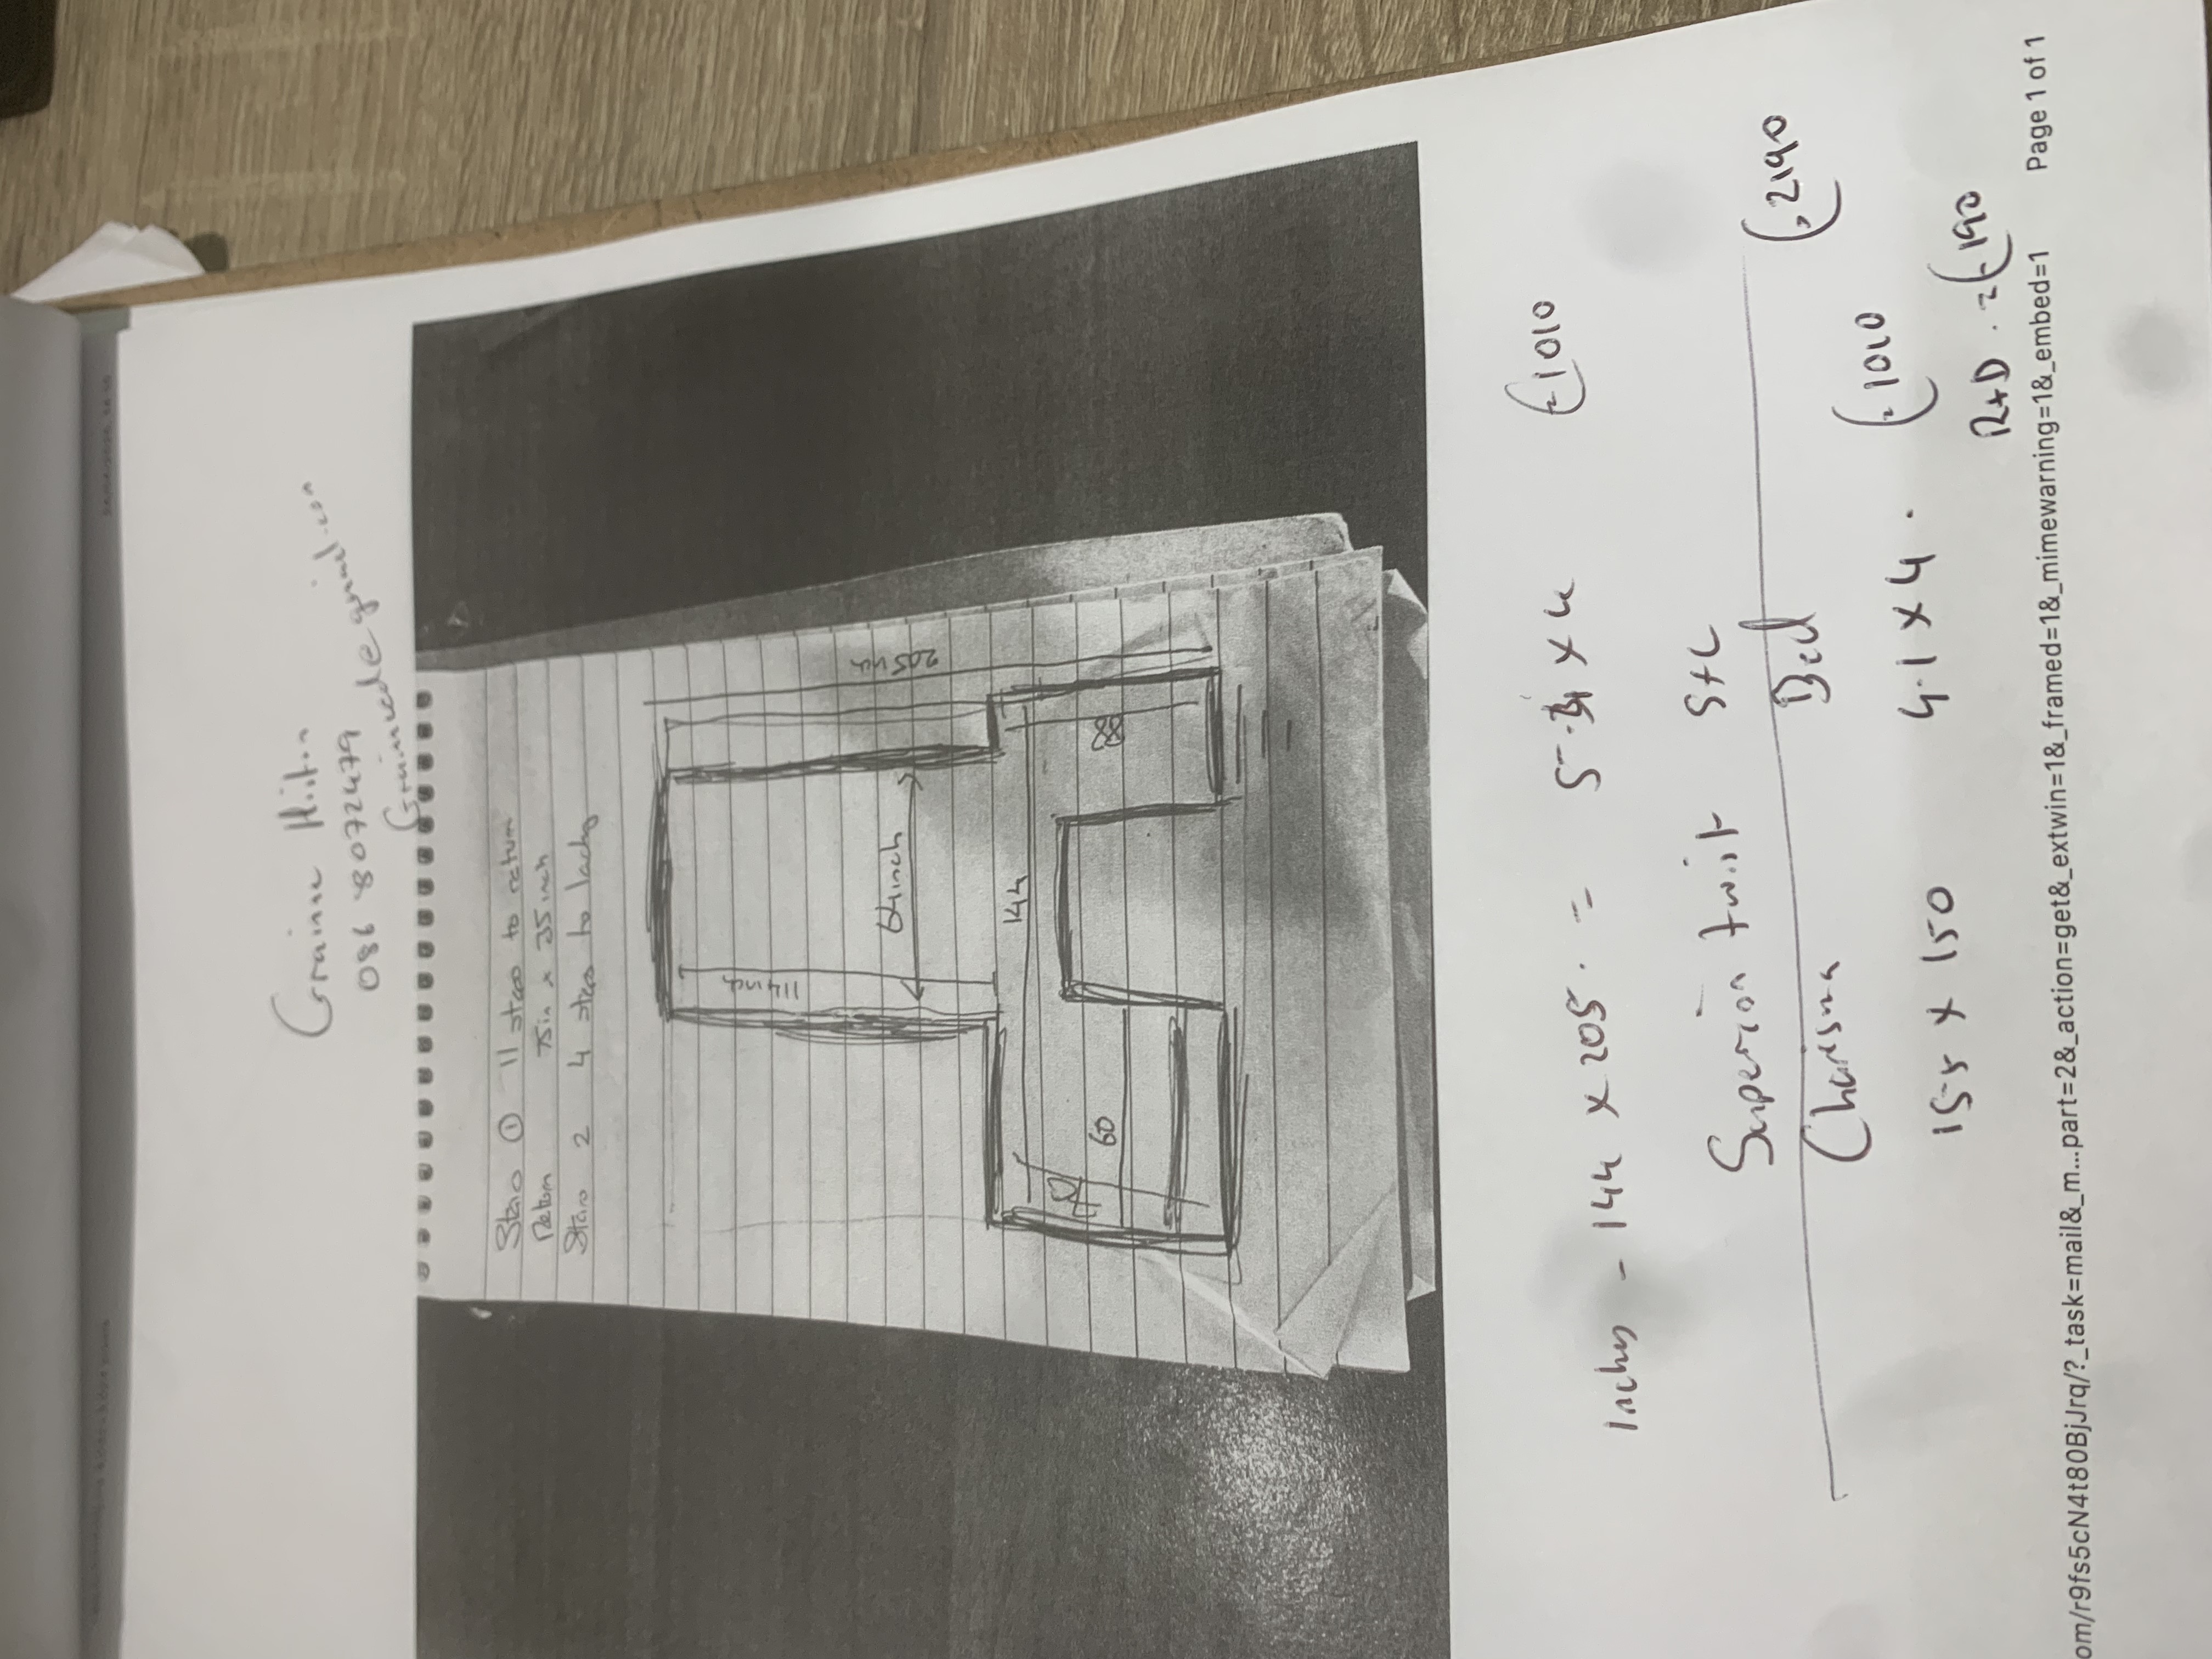 Grainne
086 8072479
Stairs ① 11 steps to return
Return 75in x 35inch
Stairs 2 4 steps to landing
205inch
114inch
64inch
144
88
60
Inches - 144 x 205. = x 4 €1010
Superior twist S+L
€2190
Charisma Bed
155 x 150 4.1 x 4. €1010
R+D. = €190
om/r9fs5cN4t80BjJrq/?_task=mail&_m...part=2&_action=get&_extwin=1&_framed=1&_mimewarning=1&_embed=1 Page 1 of 1